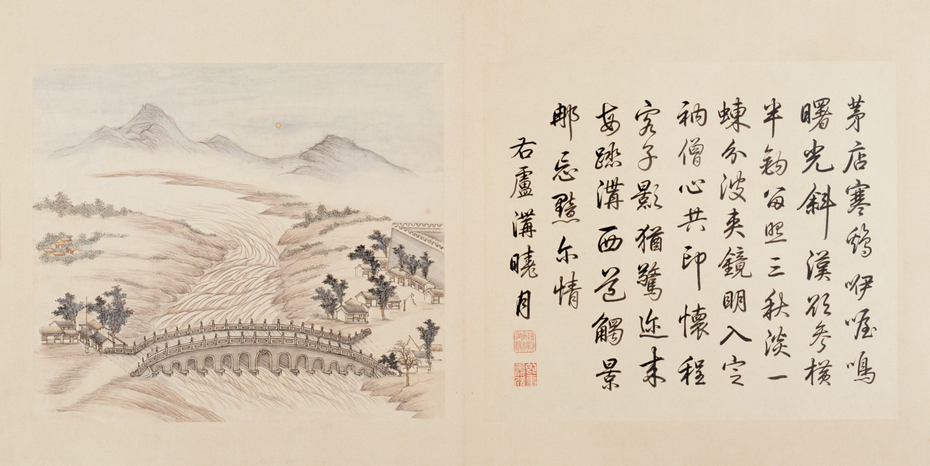 茅店寒鷄咿喔鳴
曙光斜漢欲參橫
半鉤留照三秋淡一
蝀分波夾鏡明入定
衲僧心共印懷程
客子影猶驚迩来
每踏溝西道觸景
那忘黯尔情
右盧溝曉月